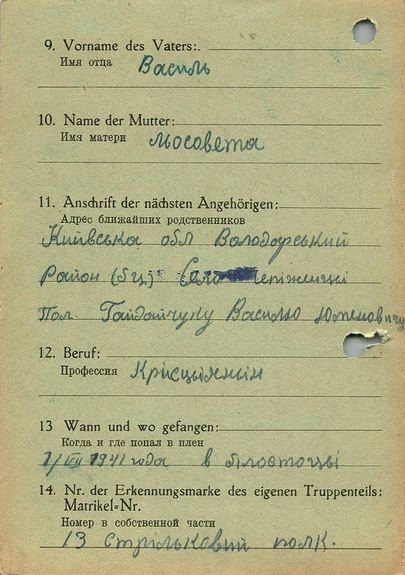 9. Vorname des Vaters:
Имя отца Василь
10. Name der Mutter:
Имя матери
11. Anschrift der nächsten Angehörigen:
Адрес ближайших родственников
Київська обл Володарський
Район (бц)
Пол. Гайдайчуку Василю
12. Beruf:
Профессия
13 Wann und wo gefangen:
Когда и где попал в плен
1/VII 1941 года в білостоці
14. Nr. der Erkennungsmarke des eigenen Truppenteils:
Matrikel=Nr.
Номер в собственной части
13 Стрільковий полк.